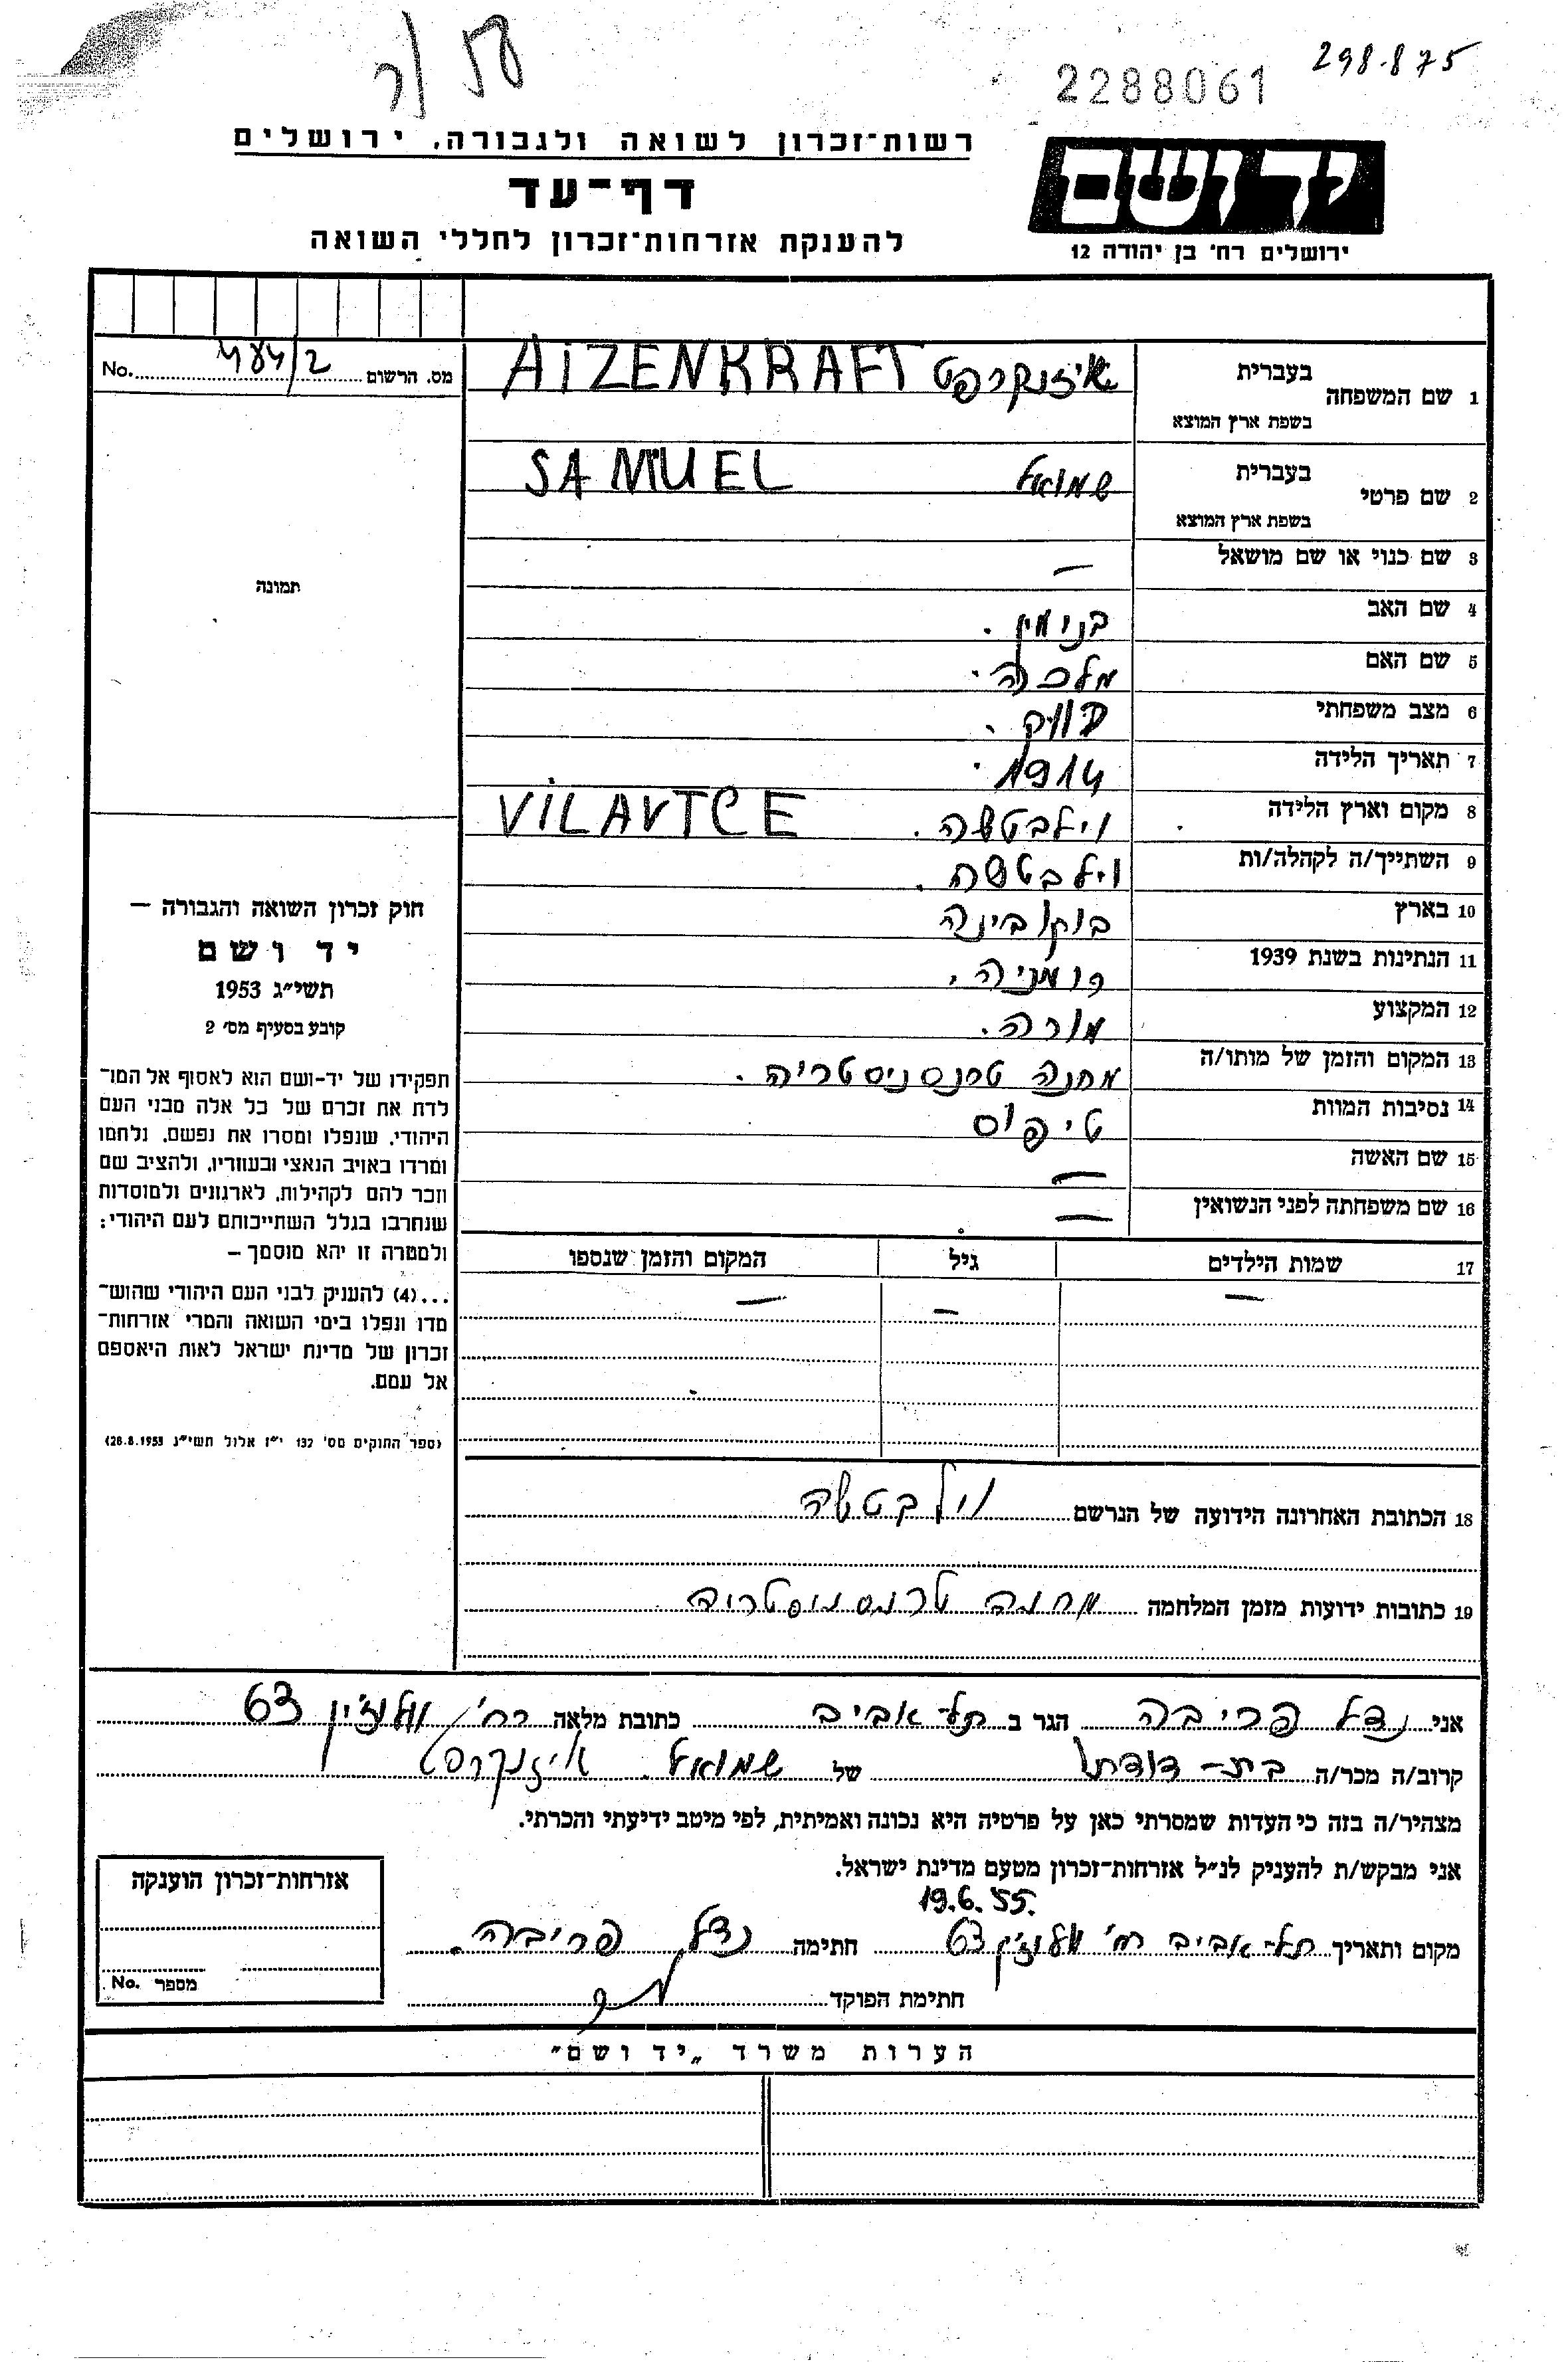 298.875
2288061
יד ושם
ירושלים רח' בן יהודה 12
רשות־זכרון לשואה ולגבורה, ירושלים
דף־עד
להענקת אזרחות־זכרון לחללי השואה
מס. הרשום No.
1 שם המשפחה בעברית איזנקרפט AIZENKRAFT
בשפת ארץ המוצא
2 שם פרטי בעברית שמואל SAMUEL
בשפת ארץ המוצא
3 שם כנוי או שם מושאל —
4 שם האב בנימין.
5 שם האם מלכה.
6 מצב משפחתי
7 תאריך הלידה 1914.
8 מקום וארץ הלידה וילבטשה. VILAVTCE
9 השתייך/ה לקהלה/ות וילבטשה.
10 בארץ בוקובינה
11 הנתינות בשנת 1939 רומניה.
12 המקצוע מורה.
13 המקום והזמן של מותו/ה מחנה טרנסניסטריה.
14 נסיבות המוות טיפוס
15 שם האשה —
16 שם משפחתה לפני הנשואין —
17 שמות הילדים גיל המקום והזמן שנספו
— — —
18 הכתובת האחרונה הידועה של הנרשם וילבטשה
19 כתובות ידועות מזמן המלחמה מחנה טרנסניסטריה
תמונה
חוק זכרון השואה והגבורה —
יד ושם
תשי״ג 1953
קובע בסעיף מס׳ 2
תפקידו של יד-ושם הוא לאסוף אל המו־
לדת את זכרם של כל אלה מבני העם
היהודי, שנפלו ומסרו את נפשם, נלחמו
ומרדו באויב הנאצי ובעוזריו, ולהציב שם
וזכר להם לקהילות, לארגונים ולמוסדות
שנחרבו בגלל השתייכותם לעם היהודי;
ולמטרה זו יהא מוסמך —
...(4) להעניק לבני העם היהודי שהוש־
מדו ונפלו בימי השואה והמרי אזרחות־
זכרון של מדינת ישראל לאות היאספם
אל עמם.
(ספר החוקים מס׳ 132 י״ז אלול תשי״ג 28.8.1953)
אני נדל פריבה הגר ב תל-אביב כתובת מלאה רח׳ וולוז׳ין
קרוב/ה מכר/ה בת-דודתו של שמואל איזנקרפט
מצהיר/ה בזה כי העדות שמסרתי כאן על פרטיה היא נכונה ואמיתית, לפי מיטב ידיעתי והכרתי.
אני מבקש/ת להעניק לנ״ל אזרחות־זכרון מטעם מדינת ישראל.
19.6.55.
מקום ותאריך תל-אביב רח׳ וולוז׳ין חתימה נדל פריבה.
חתימת הפוקד
אזרחות־זכרון הוענקה
מספר No.
הערות משרד „יד ושם״